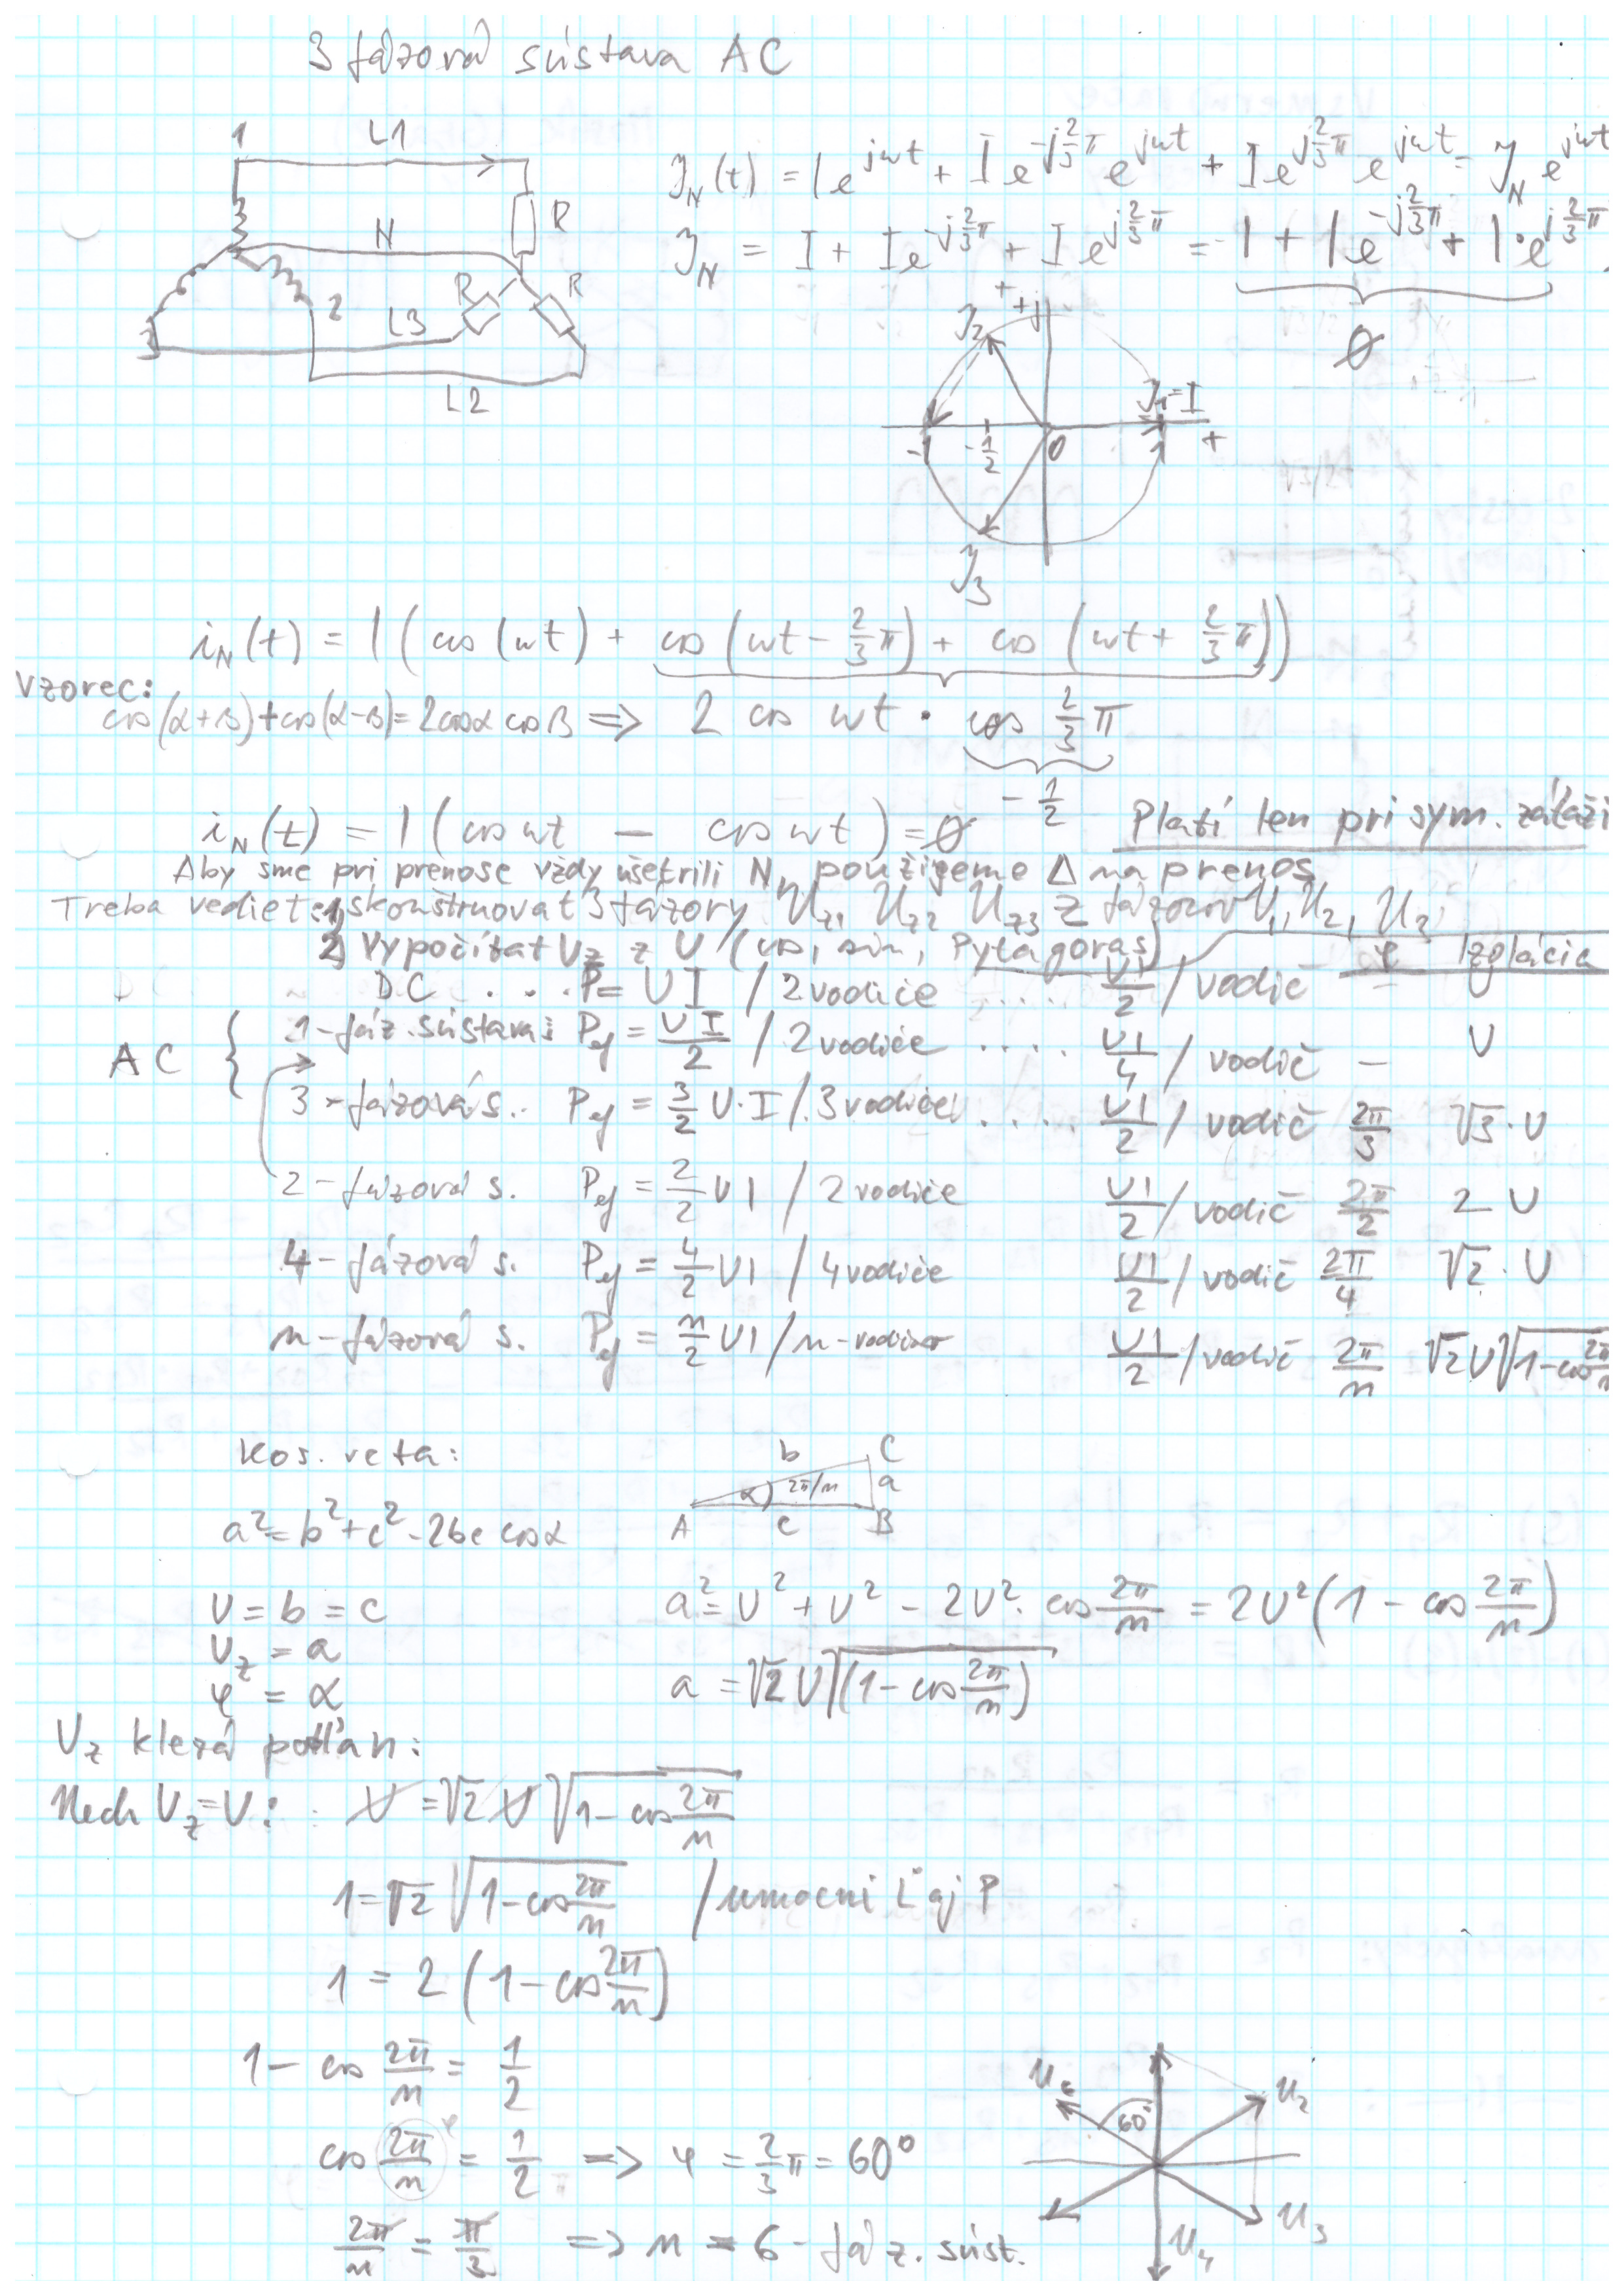 3 fázová sústava AC
1 L1
R
N
R R
2
L3
3
L2
I_N(t) = I e^{jωt} + I e^{-j 2/3 π} e^{jωt} + I e^{j 2/3 π} e^{jωt} = I_N e^{jωt}
I_N = I + I e^{-j 2/3 π} + I e^{j 2/3 π} = 1 + 1 e^{-j 2/3 π} + 1·e^{j 2/3 π}
0
+ +j
I_2
I_1=I
-1 -1/2 0 1 +
I_3
i_N(t) = I ( cos (ωt) + cos (ωt - 2/3 π) + cos (ωt + 2/3 π))
Vzorec:
cos(α+β)+cos(α-β)=2cosα cosβ => 2 cos ωt · cos 2/3 π
-1/2
i_N(t) = I ( cos ωt - cos ωt ) = 0 Platí len pri sym. záťaži
Aby sme pri prenose vždy ušetrili N, použijeme Δ na prenos
Treba vedieť: 1) skonštruovať 3 fázory U_z1 U_z2 U_z3 z fázorov U_1, U_2, U_3
2) Vypočítať U_z z U (cos, sin, Pytagoras) φ Izolácia
DC .... P = UI / 2 vodiče .... UI/2 / vodič - U
AC { 1-fáz. sústava: P_ef = UI/2 / 2 vodiče .... UI/4 / vodič - U
3-fázová s.. P_ef = 3/2 U·I / 3 vodiče .... UI/2 / vodič 2π/3 √3·U
2-fázová s. P_ef = 2/2 UI / 2 vodiče UI/2 / vodič 2π/2 2 U
4-fázová s. P_ef = 4/2 UI / 4 vodiče UI/2 / vodič 2π/4 √2·U
n-fázová s. P_ef = n/2 UI / n-vodičov UI/2 / vodič 2π/n √2 U √(1-cos 2π/n
Kos. veta:
b C
α 2π/n a
A c B
a² = b² + c² - 2bc cosα
U = b = c a² = U² + U² - 2U² · cos 2π/n = 2U² (1 - cos 2π/n)
U_z = a
φ = α a = √2 U √(1 - cos 2π/n)
U_z klesá podľa n:
Nech U_z = U: U = √2 U √(1 - cos 2π/n)
1 = √2 √(1 - cos 2π/n) / umocni Ľ aj P
1 = 2 (1 - cos 2π/n)
1 - cos 2π/n = 1/2
cos 2π/n = 1/2 => φ = 2/3 π = 60°
2π/n = π/3 => n = 6-fáz. súst.
U_6 U_2
60°
U_3
U_4